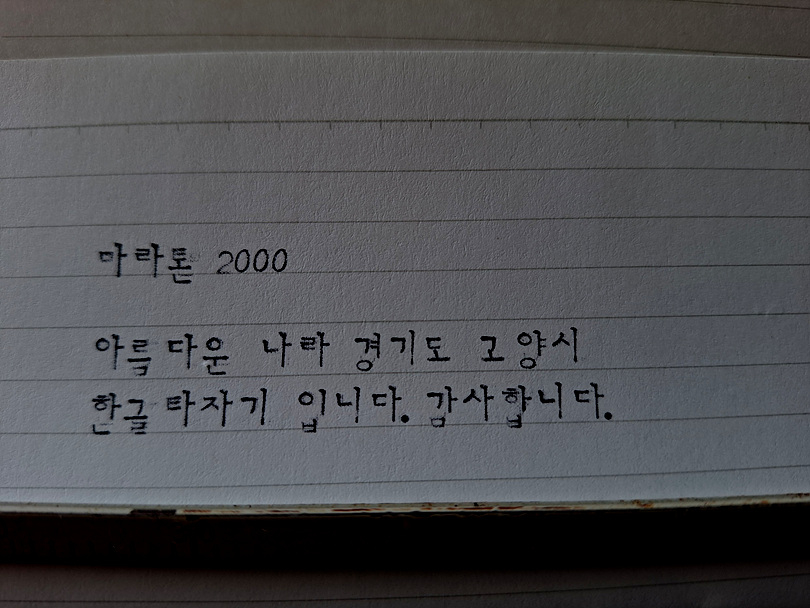 마라톤 2000
아름다운 나라 경기도 고양시
한글타자기 입니다. 감사합니다.